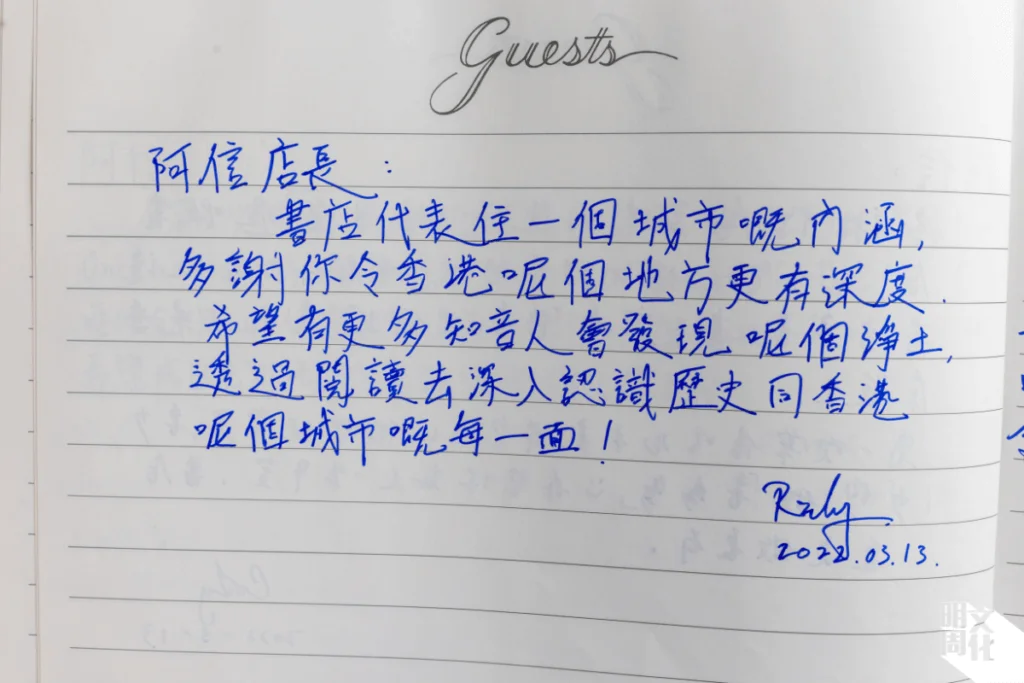 Guests
阿信店長：
書店代表住一個城市嘅內涵,
多謝你令香港呢個地方更有深度.
希望有更多知音人會發現呢個淨土,
透過閱讀去深入認識歷史同香港
呢個城市嘅每一面！
2022.03.13.
明周文化